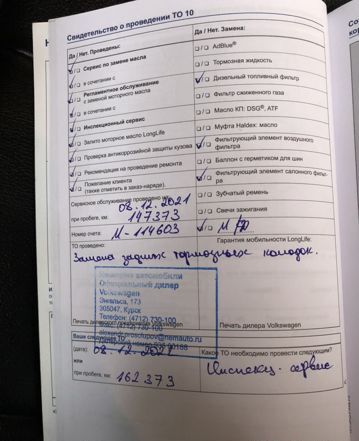 Свидетельство о проведении ТО 10
Да / Нет. Проведены:
Да / Нет. Замена:
Сервис по замене масла
в сочетании с
Регламентное обслуживание
с заменой моторного масла
в сочетании с
Инспекционный сервис
Залито моторное масло LongLife
Проверка антикоррозийной защиты кузова
Рекомендация на проведение ремонта
Пожелание клиента
(также отметить в заказ-наряде).
AdBlue®
Тормозная жидкость
Дизельный топливный фильтр
Фильтр сжиженного газа
Масло КП: DSG®, ATF
Муфта Haldex: масло
Фильтрующий элемент воздушного
фильтра
Баллон с герметиком для шин
Фильтрующий элемент салонного фильт-
ра
Зубчатый ремень
Свечи зажигания
Сервисное обслуживание проведено
08.12.2021
при пробеге, км: 147373
Номер счета: М-114603
ТО проведено:
Гарантия мобильности LongLife:
Замена задних тормозных колодок.
автомобили
Официальный дилер
Volkswagen
Энгельса, 173
305047, Курск
Телефон: (4712) 730-100
730-100
Печать дилера Volkswagen
Ваше следующее ТО
(дата): 08.12.2022
или
при пробеге, км: 162373
Какое ТО необходимо провести следующим?
Инспекц. сервис